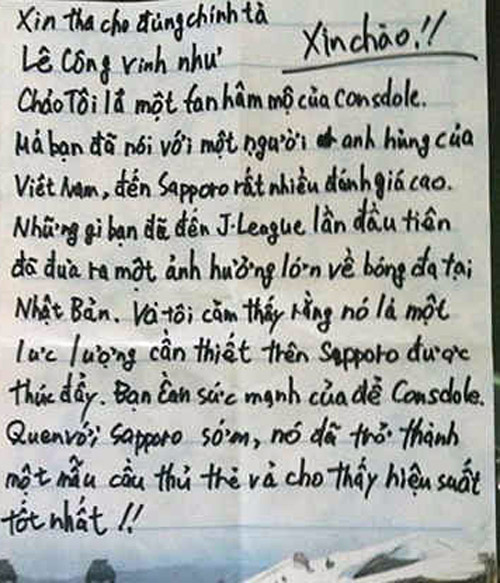 Xin tha cho đúng chính tả
Xin chào!!
Lê Công vinh như
Chảo Tôi lả một fan hâm mộ của Consdole.
Mả bạn đã nói với một người anh hùng của
Viêt Nam, đến Sapporo rất nhiều đánh giá cao.
Những gi bạn đã đến J-League lần đầu tiên
đã đưa ra một ảnh hưởng lớn về bóng đạ tại
Nhật Bản. Vả tôi cảm thấy rằng nó lả một
lưc lượng cần thiết trên Sapporo được
thúc đẩy. Bạn Cần sức mạnh của để Consdole.
Quen với Sapporo sớm, nó dã trở thành
một mẫu câu thủ trẻ vả cho thấy hiệu suất
tốt nhất !!